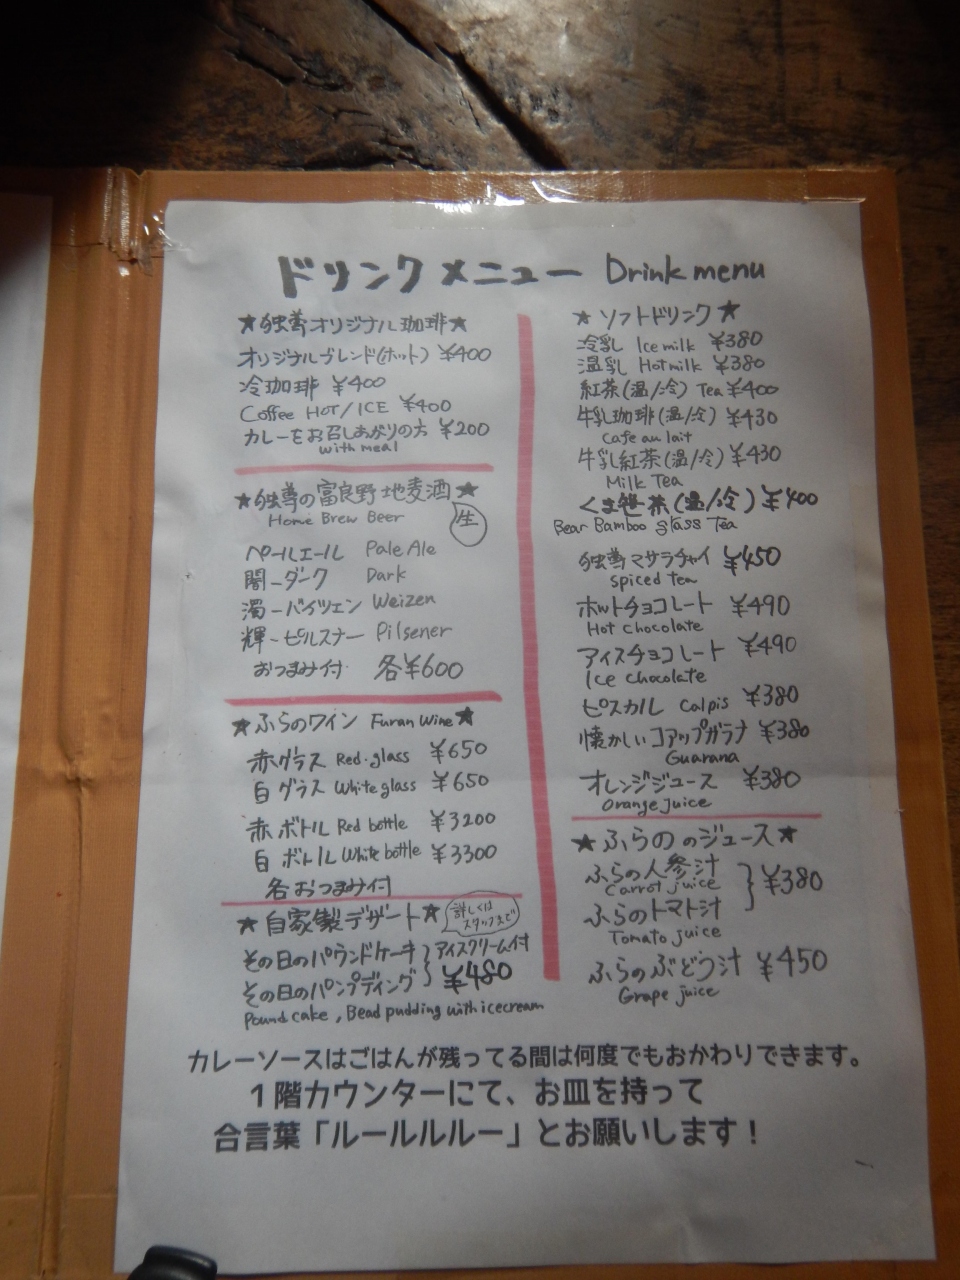 ドリンクメニュー Drink menu
★独尊オリジナル珈琲★
オリジナルブレンド(ホット) ¥400
冷珈琲 ¥400
Coffee HOT/ICE ¥400
カレーをお召しあがりの方 ¥200
with meal
★独尊の富良野地麦酒★
Home Brew Beer
生
ペールエール Pale Ale
闇-ダーク Dark
濁-バイツェン Weizen
輝-ピルスナー Pilsener
おつまみ付 各¥600
★ふらのワイン Furan Wine★
赤グラス Red.glass ¥650
白グラス White glass ¥650
赤ボトル Red bottle ¥3200
白ボトル White bottle ¥3300
各おつまみ付
★自家製デザート★
詳しくは
スタッフまで
その日のパウンドケーキ
その日のパンプディング
アイスクリーム付
¥480
Pound cake, Bead pudding with icecream
★ソフトドリンク★
冷乳 Ice milk ¥380
温乳 Hot milk ¥380
紅茶(温/冷) Tea ¥400
牛乳珈琲(温/冷) ¥430
Cafe au lait
牛乳紅茶(温/冷) ¥430
Milk Tea
くま笹茶(温/冷) ¥400
Bear Bamboo glass Tea
独尊マサラチャイ ¥450
spiced tea
ホットチョコレート ¥490
Hot chocolate
アイスチョコレート ¥490
Ice chocolate
ピスカル Calpis ¥380
懐かしいコアップガラナ ¥380
Guarana
オレンジジュース ¥380
Orange juice
★ふらののジュース★
ふらの人参汁
Carrot juice
ふらのトマト汁
Tomato juice
¥380
ふらのぶどう汁 ¥450
Grape juice
カレーソースはごはんが残ってる間は何度でもおかわりできます。
1階カウンターにて、お皿を持って
合言葉「ルールルルー」とお願いします！